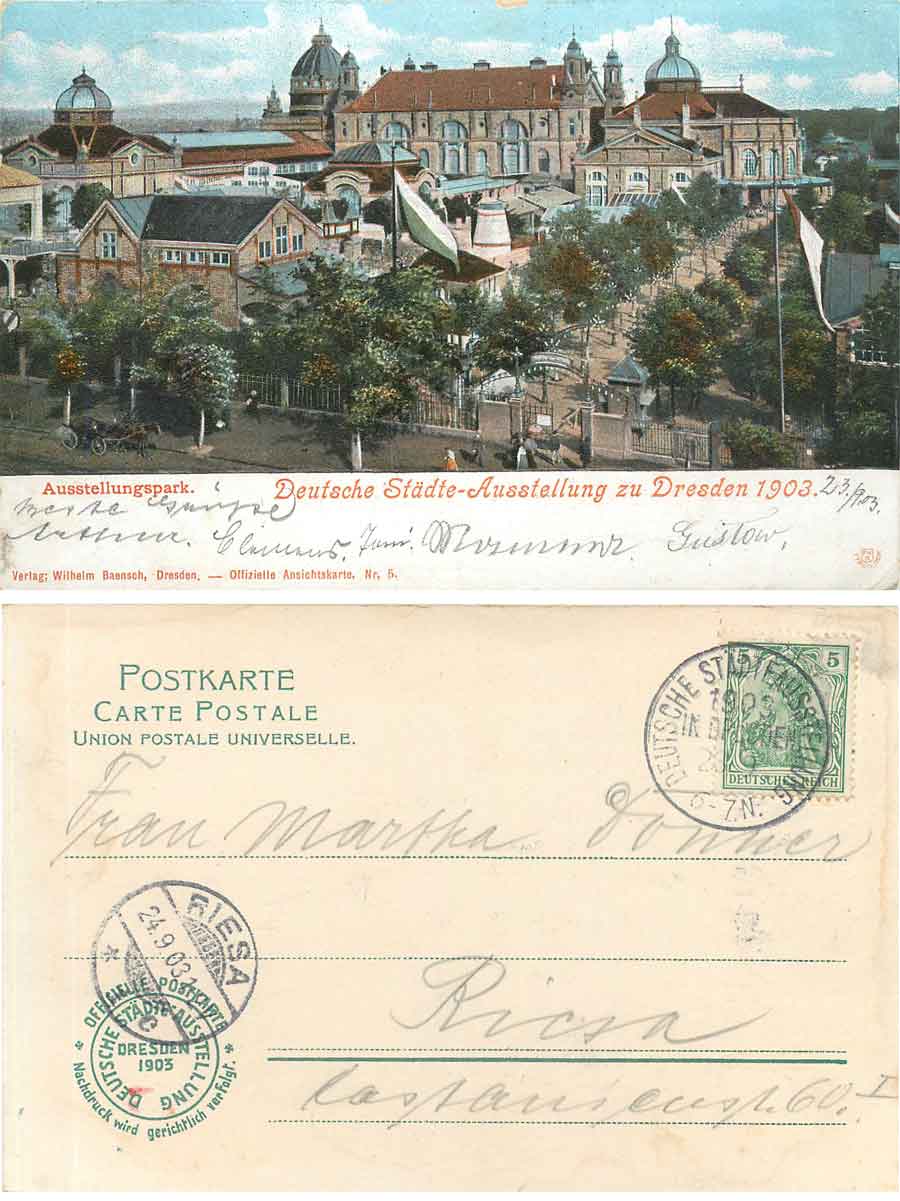 Ausstellungspark. Deutsche Städte-Ausstellung zu Dresden 1903. 23./9.03.
Beste Grüsse
Arthur. Clemens, Toni. Gustav,
Verlag: Wilhelm Baensch, Dresden. — Offizielle Ansichtskarte. Nr. 5.
POSTKARTE
CARTE POSTALE
UNION POSTALE UNIVERSELLE.
5 5
DEUTSCHES REICH
DEUTSCHE STÄDTEAUSSTELLUNG
1903
IN DRESDEN
6-7.N.
Frau Martha Donner
RIESA
24.9.03
*
c
OFFICIELLE POSTKARTE
DEUTSCHE STÄDTE-AUSSTELLUNG
DRESDEN
1903
* Nachdruck wird gerichtlich verfolgt. *
Riesa
Castanienstr. 60. I